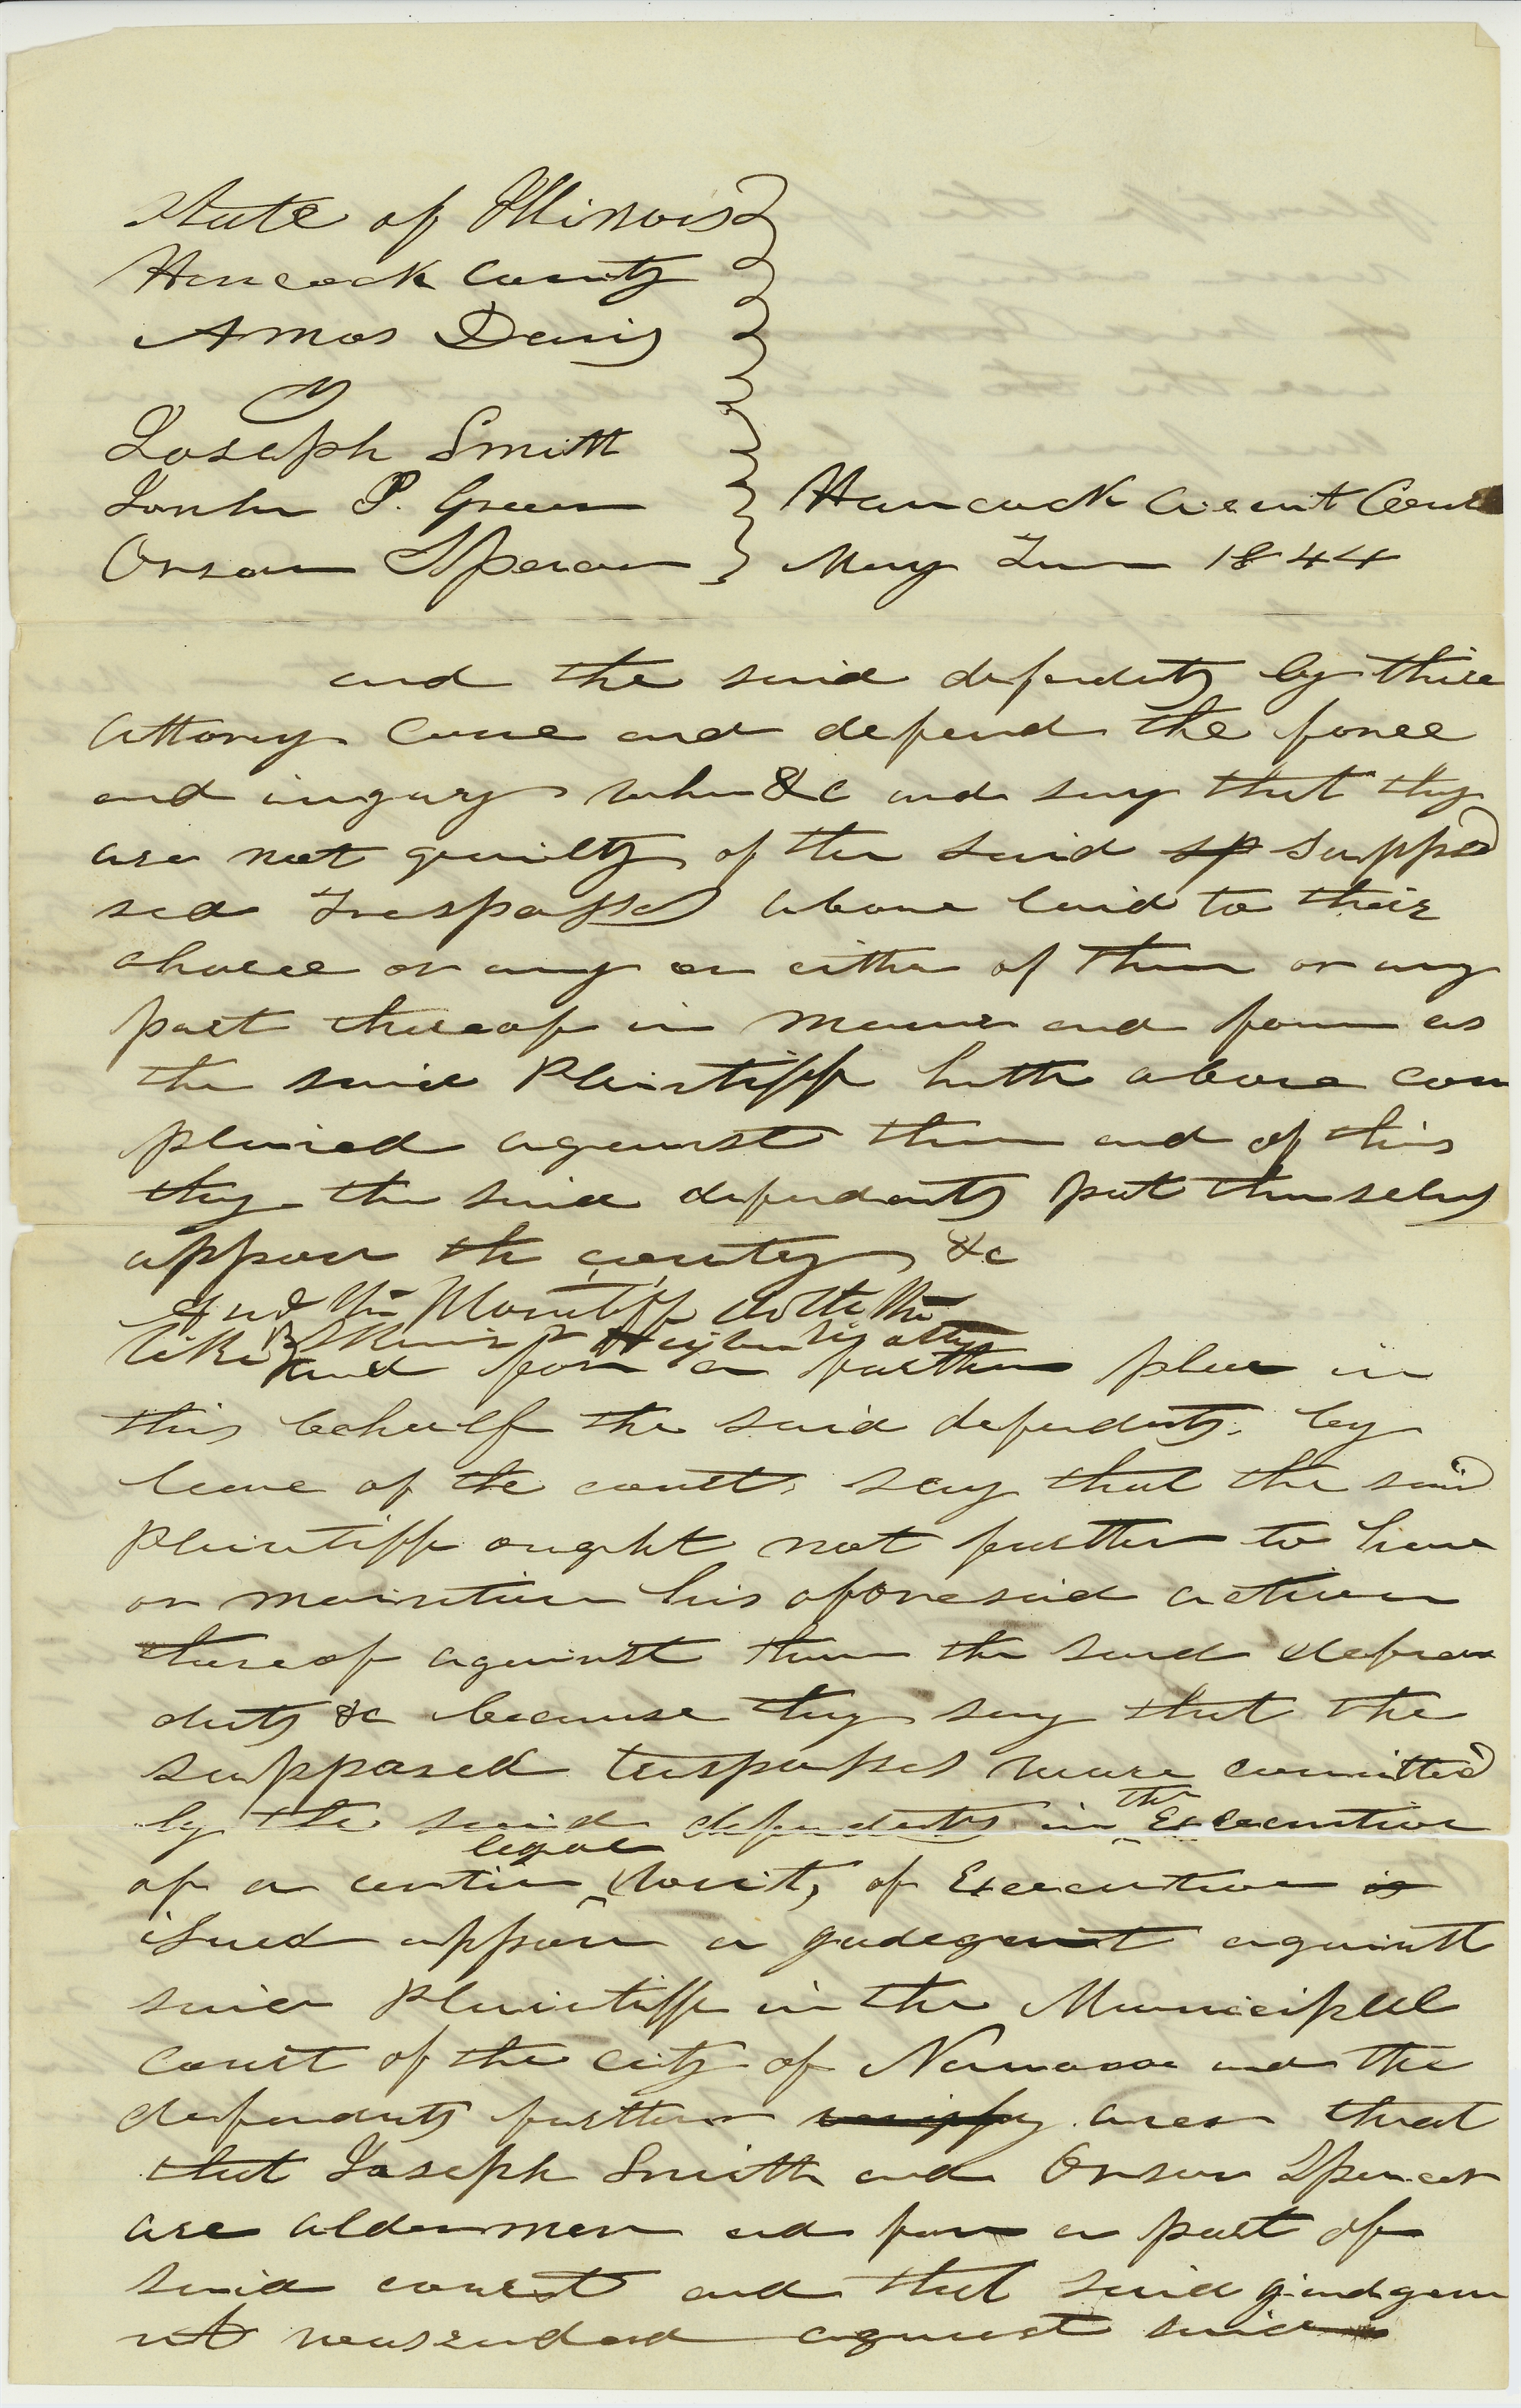 State of Illinois
Hancock County
Amos Davis
vs
Joseph Smith
P. Green
Orson Spencer
Hancock Circuit Cour
May Term 1844
and the said defendnts by thire
attorney come and defend the force
and ingury when &c and say that thy
are not guilty of the said sp suppo
sed Trespasses above laid to their
charee or any or either of them or any
part thereof in manner and form as
the said Plaintiff hath above com
plained against them and of this
they the said defendants put themselvs
appon the country &c
And the Plaintiff doth the
like Skinner & by attys
and for a further plea in
this behalf the said defendnts. by
leave of the court, say that the said
plaintiff ought not further to have
or maintain his aforesaid action
thereof against them the said defen
dnts &c because thy say that the
supposed trespasses ware committed
by the said defendnts in the Execution
of a certin legal writ, of Execution is
isued appon a judegment against
said Plaintiff in the Municipal
court of the city of Nauvoo and the
defendnts further aver that
that Joseph Smith and Orson Spencer
are aldermen and form a part of
said court and that said judgem
nt was rendered against said